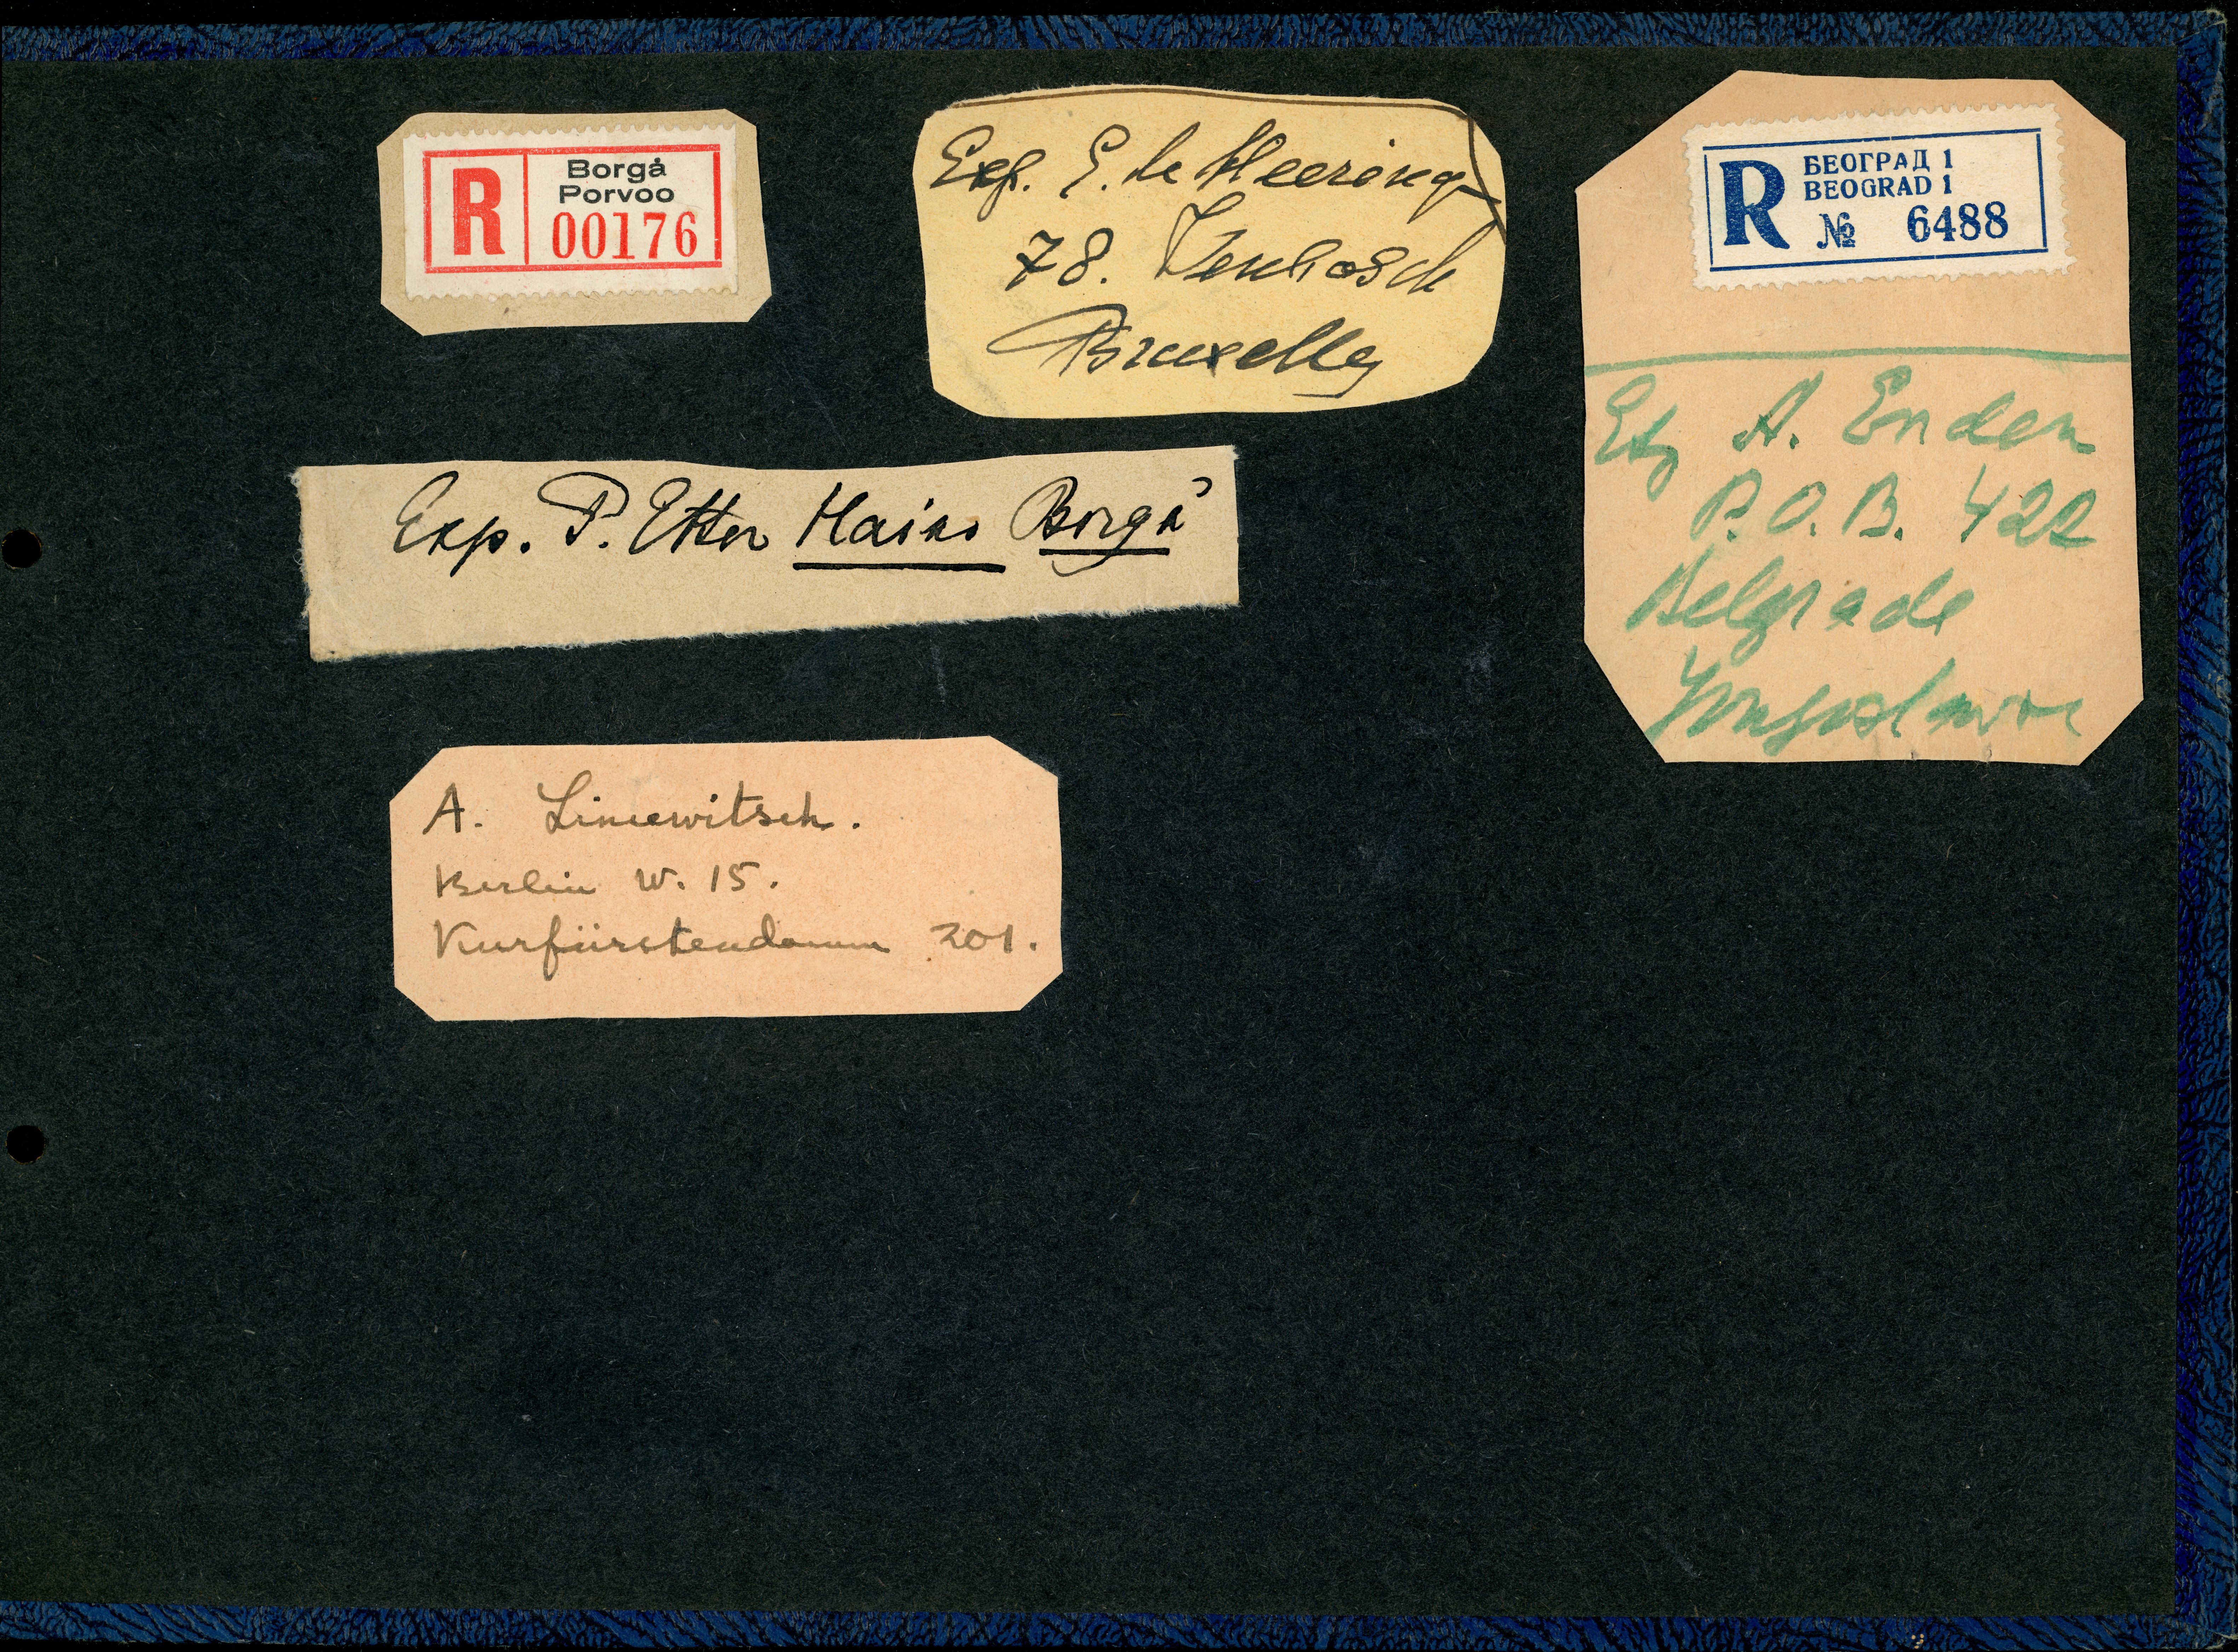 R
Borgå
Porvoo
00176
Exp. E. de Heering
78. Tenbosch
Bruxelles
R
БЕОГРАД 1
BEOGRAD 1
№ 6488
A. Enden
P.O.B. 422
Belgrade
Exp. P. Etter Haiko Borgå
A. Liniewitsch.
Berlin W. 15.
Kurfürstendamm 201.